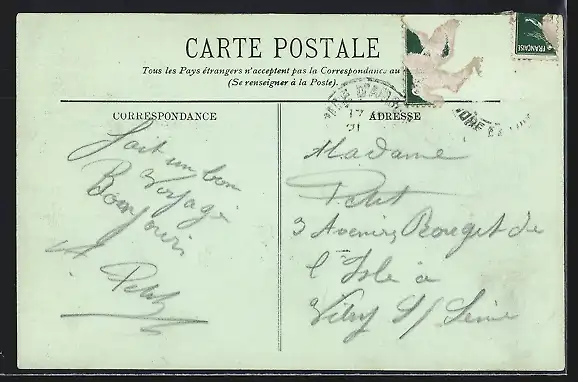 CARTE POSTALE
Tous les Pays étrangers n'acceptent pas la Correspondance au
(Se renseigner à la Poste).
CORRESPONDANCE
fait un bon
voyage
Bonjour
A. Petit
ADRESSE
Madame
Petit
3 Avenue Rouget de
l'Isle à
Vitry S/ Seine
FRANÇAISE